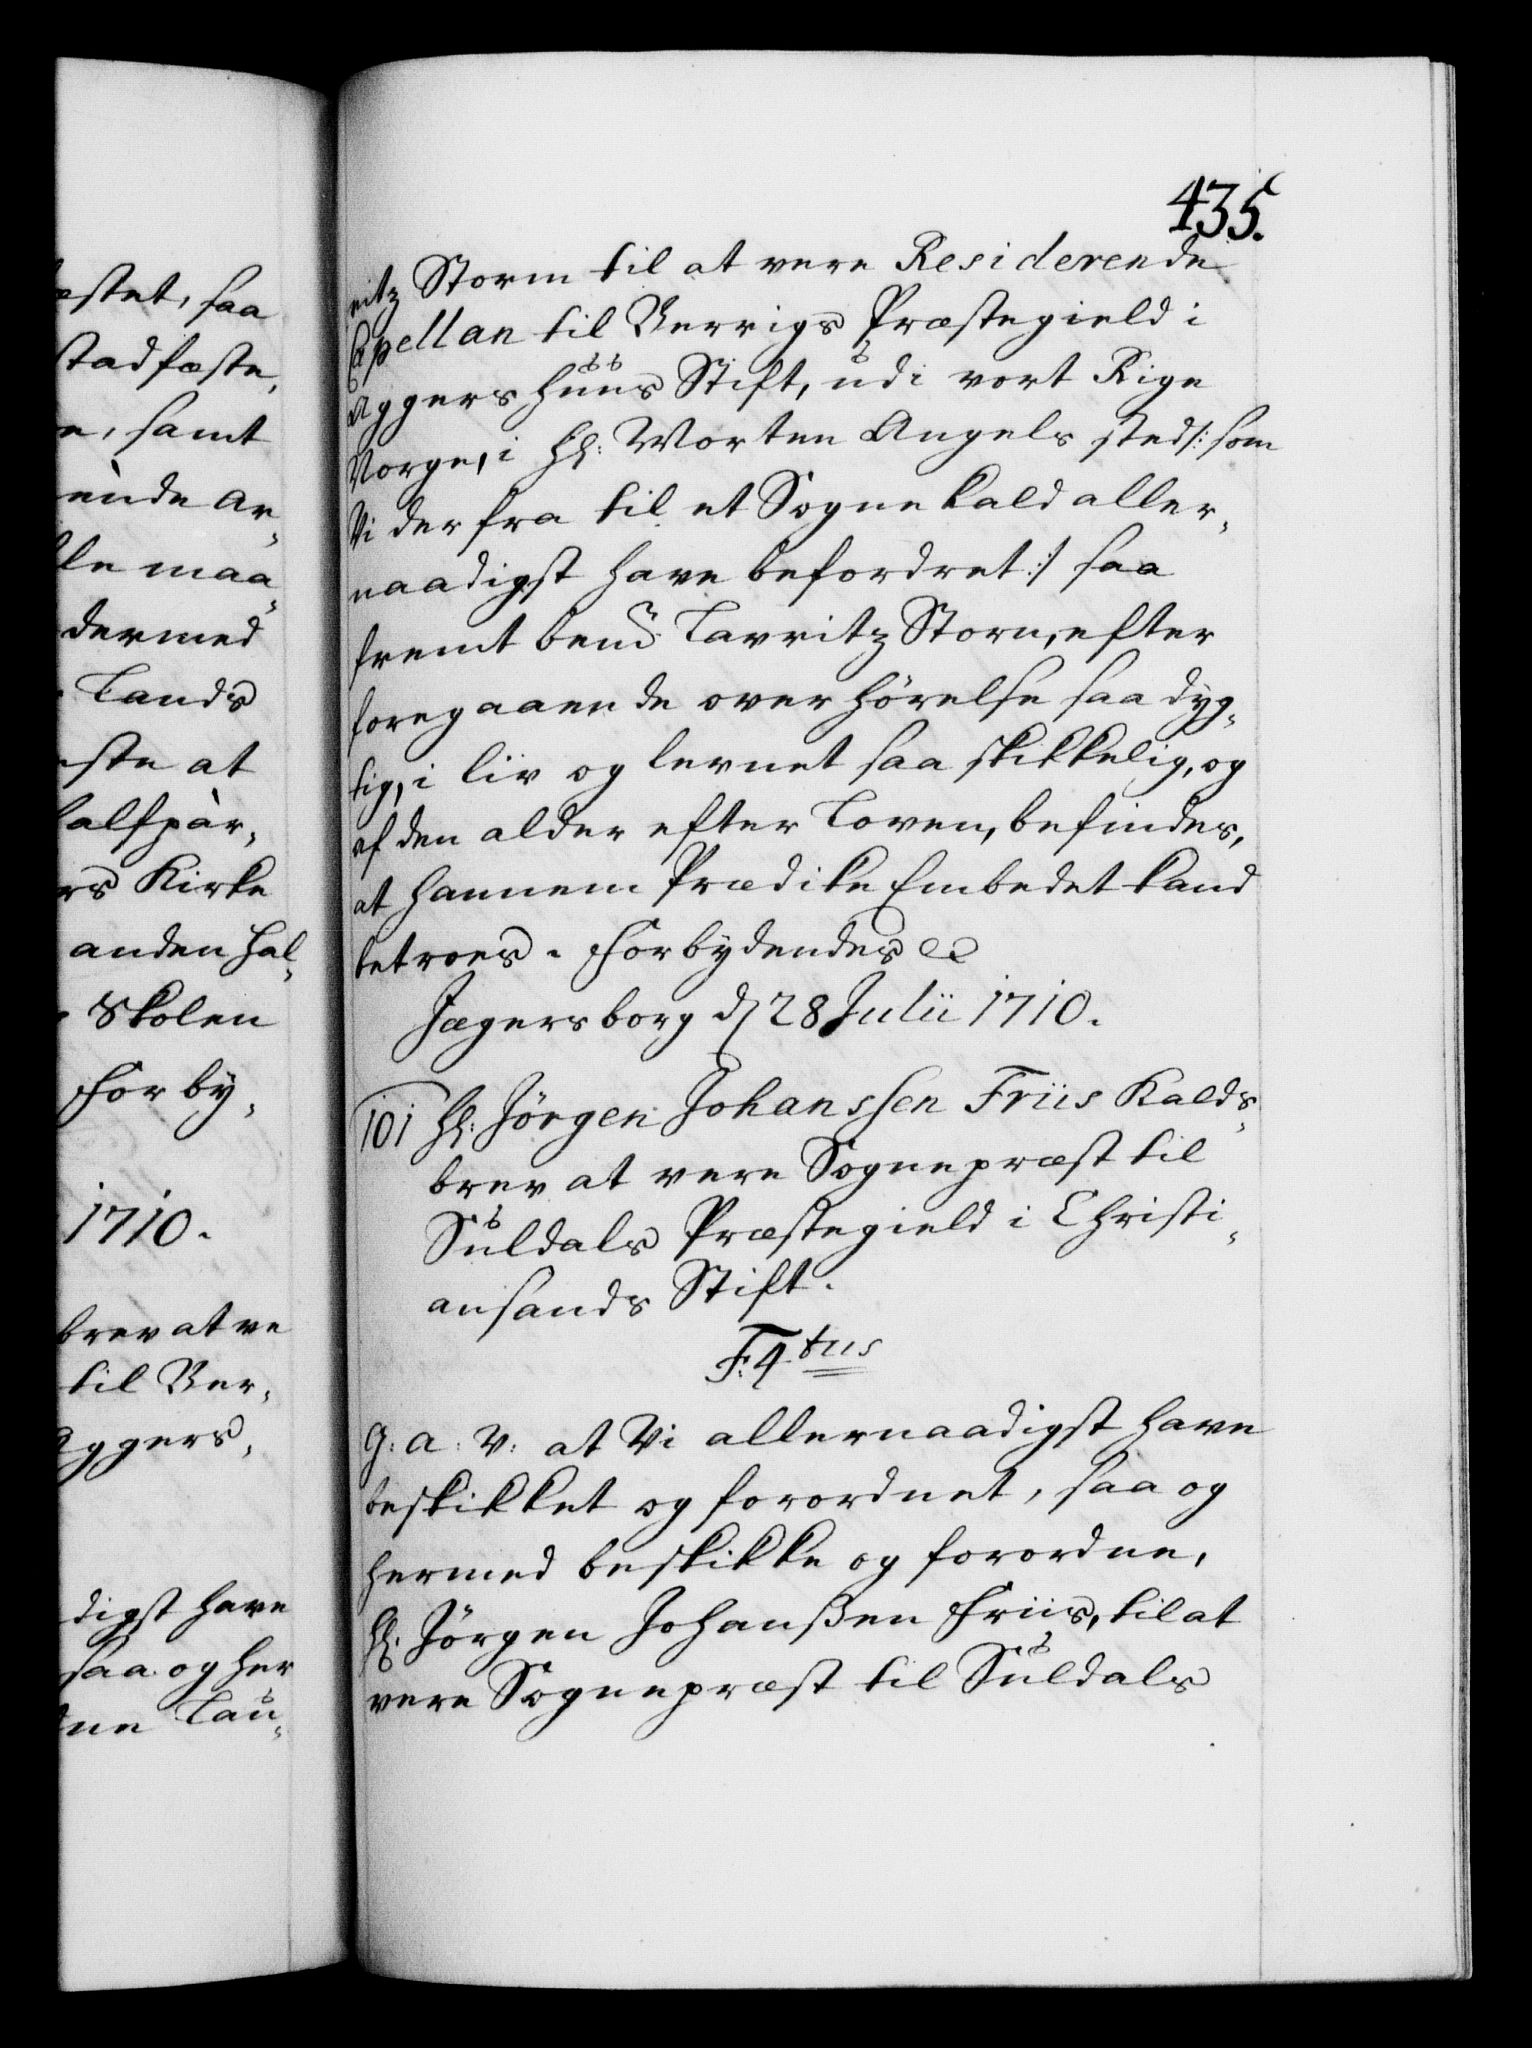 æstet, saa
stadfæste,
e, samt
ende Ar-
lle maa-
dermed
Lands
este at
halfpar-
rs Kirke
anden Hal-
Skolen
Forby-
1710.
brev at ve
til Ver-
Aggers-
digst have
saa og her
ne Lau-
435.
ritz Storm til at vere Residerende
Capellan til Verrigs Præstegield i
Aggershuus Stift, udi vort Rige
Norge, i Hr: Morten Angels sted /: som
Vi der fra til et Sogne kald aller-
naadigst have befordret :/ saa
fremt bemt Lavritz Storm, efter
foregaaende overhörelse saa dyg-
tig, i liv og levnet saa skikkelig, og
af den alder efter Loven, befindes,
at hannem Prædike Embedet kand
betroes. Forbydendes &c
Jægersborg d 28 Julii 1710.
101 Hr: Jörgen Johanssen Friis Kalds-
brev at vere Sognepræst til
Suldals Præstegield i Christi-
ansands Stift.
F: 4tus
G: A: V: at Vi allernaadigst have
beskikket og forordnet, saa og
hermed beskikke og forordne,
Hr. Jörgen Johanßen Friis, til at
vere Sognepræst til Suldals